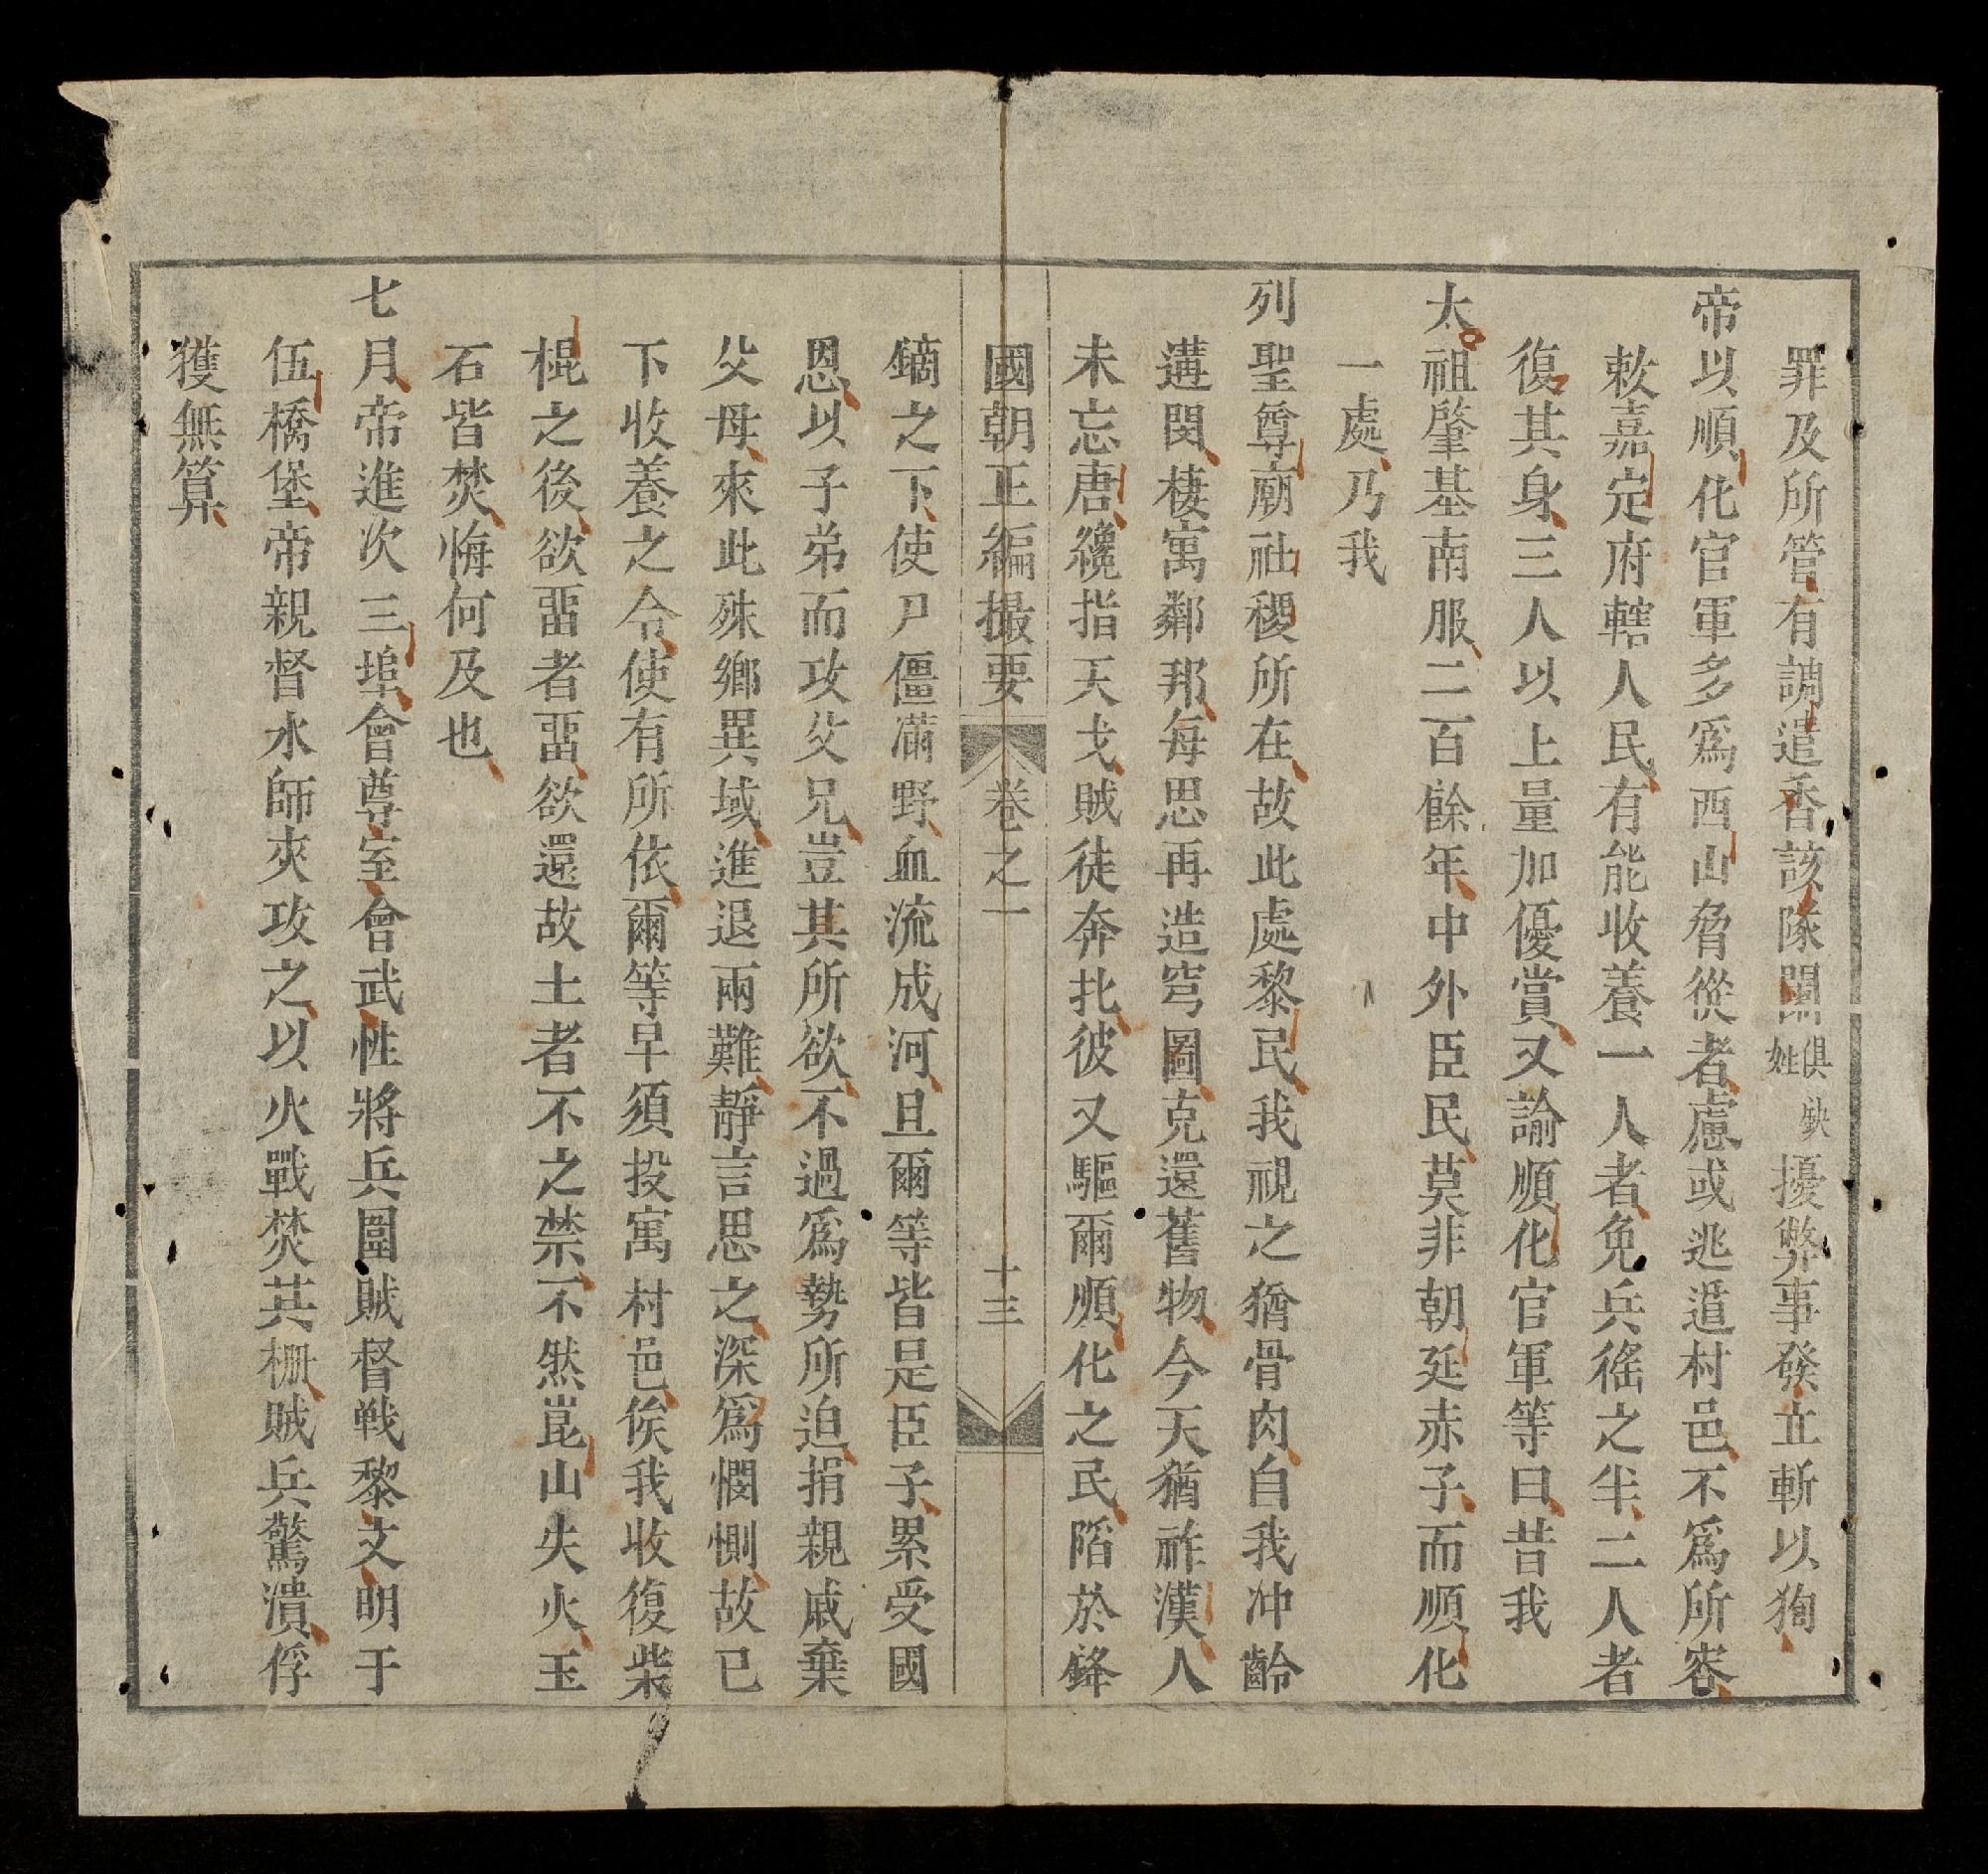 罪及所管有調遣香該隊閫俱缺姓擾弊事發立斬以狥
帝以順化官軍多爲西山脅從者慮或逃遁村邑不爲所容
敕嘉定府轄人民有能收養一人者免兵徭之半二人者
復其身三人以上量加優賞又諭順化官軍等曰昔我
太祖肇基南服二百餘年中外臣民莫非朝廷赤子而順化
一處乃我
列聖尊廟社稷所在故此處黎民我視之猶骨肉自我冲齡
遘閔棲寓鄰邦每思再造穹圖克還舊物今天猶祚漢人
未忘唐纔指天戈賊徒奔北彼又驅爾順化之民陷於鋒
國朝正編撮要 卷之一 十三
鏑之下使尸僵滿野血流成河且爾等皆是臣子累受國
恩以子弟而攻父兄豈其所欲不過爲勢所迫捐親戚棄
父母來此殊鄉異域進退兩難靜言思之深爲憫惻故已
下收養之令使有所依爾等早須投寓村邑俟我收復柴
棍之後欲畱者畱欲還故土者不之禁不然崑山失火玉
石皆焚悔何及也
七月帝進次三埠會尊室會武性將兵圍賊督戦黎文明于
伍橋堡帝親督水師夾攻之以火戰焚其柵賊兵驚潰俘
獲無算